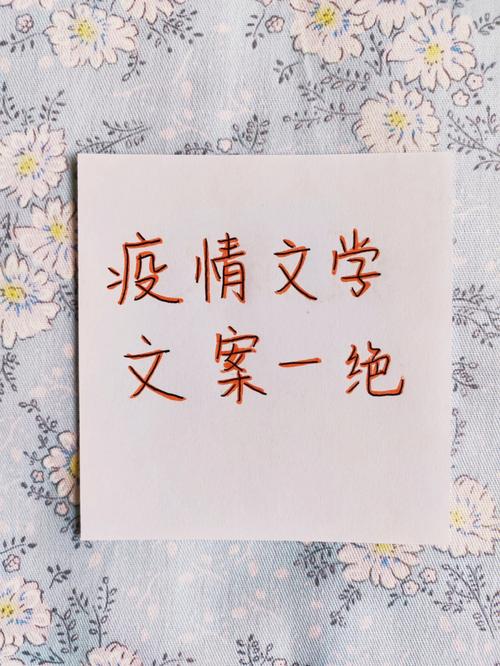 疫情文学
文案一绝